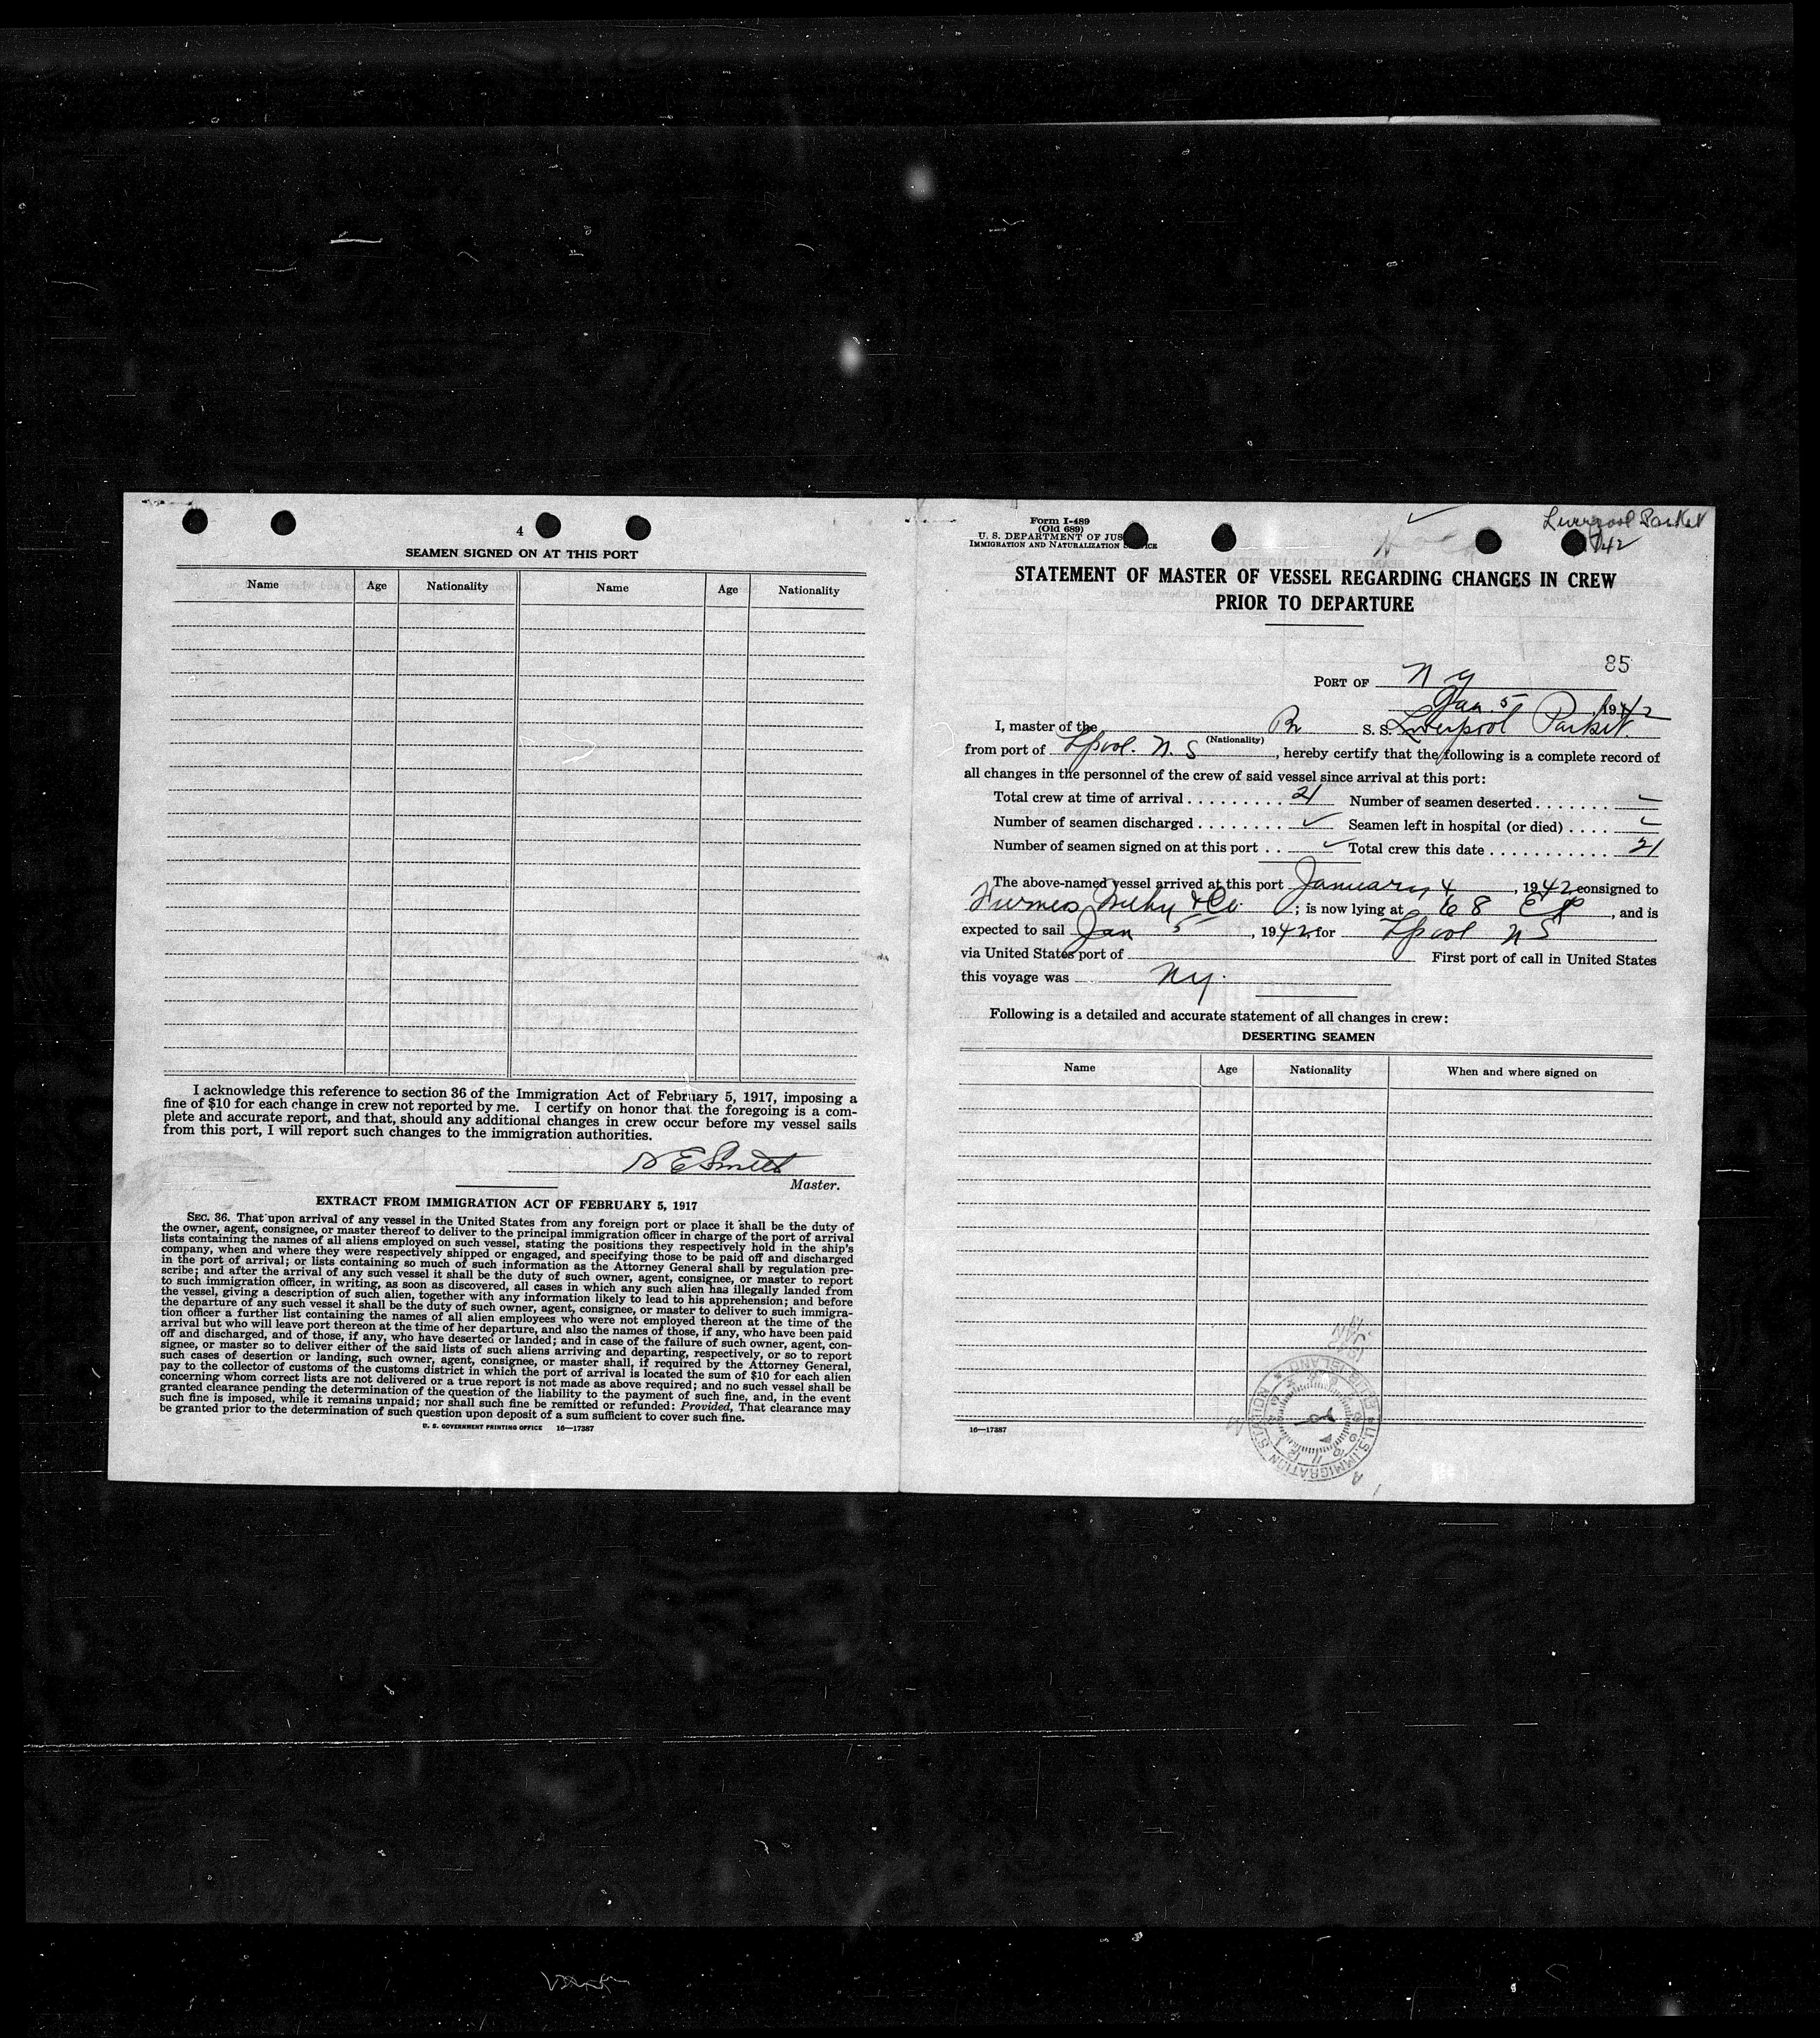 4
SEAMEN SIGNED ON AT THIS PORT
Name Age Nationality Name Age Nationality
I acknowledge this reference to section 36 of the Immigration Act of February 5, 1917, imposing a
fine of $10 for each change in crew not reported by me. I certify on honor that the foregoing is a com-
plete and accurate report, and that, should any additional changes in crew occur before my vessel sails
from this port, I will report such changes to the immigration authorities.
E Smith
Master.
EXTRACT FROM IMMIGRATION ACT OF FEBRUARY 5, 1917
SEC. 36. That upon arrival of any vessel in the United States from any foreign port or place it shall be the duty of
the owner, agent, consignee, or master thereof to deliver to the principal immigration officer in charge of the port of arrival
lists containing the names of all aliens employed on such vessel, stating the positions they respectively hold in the ship's
company, when and where they were respectively shipped or engaged, and specifying those to be paid off and discharged
in the port of arrival; or lists containing so much of such information as the Attorney General shall by regulation pre-
scribe; and after the arrival of any such vessel it shall be the duty of such owner, agent, consignee, or master to report
to such immigration officer, in writing, as soon as discovered, all cases in which any such alien has illegally landed from
the vessel, giving a description of such alien, together with any information likely to lead to his apprehension; and before
the departure of any such vessel it shall be the duty of such owner, agent, consignee, or master to deliver to such immigra-
tion officer a further list containing the names of all alien employees who were not employed thereon at the time of the
arrival but who will leave port thereon at the time of her departure, and also the names of those, if any, who have been paid
off and discharged, and of those, if any, who have deserted or landed; and in case of the failure of such owner, agent, con-
signee, or master so to deliver either of the said lists of such aliens arriving and departing, respectively, or so to report
such cases of desertion or landing, such owner, agent, consignee, or master shall, if required by the Attorney General,
pay to the collector of customs of the customs district in which the port of arrival is located the sum of $10 for each alien
concerning whom correct lists are not delivered or a true report is not made as above required; and no such vessel shall be
granted clearance pending the determination of the question of the liability to the payment of such fine, and, in the event
such fine is imposed, while it remains unpaid; nor shall such fine be remitted or refunded: Provided, That clearance may
be granted prior to the determination of such question upon deposit of a sum sufficient to cover such fine.
U. S. GOVERNMENT PRINTING OFFICE 16—17387
Form I-489
(Old 689)
U. S. DEPARTMENT OF JUS
IMMIGRATION AND NATURALIZATION
Liverpool Packet
42
STATEMENT OF MASTER OF VESSEL REGARDING CHANGES IN CREW
PRIOR TO DEPARTURE
85
PORT OF N Y
Jan. 5, 1942
I, master of the Br S. S. Liverpool Packet
(Nationality)
from port of Lpool. N. S, hereby certify that the following is a complete record of
all changes in the personnel of the crew of said vessel since arrival at this port:
Total crew at time of arrival 21 Number of seamen deserted
Number of seamen discharged Seamen left in hospital (or died)
Number of seamen signed on at this port Total crew this date 21
The above-named vessel arrived at this port January 4, 1942, consigned to
Furness, Withy & Co.; is now lying at 68 , and is
expected to sail Jan 5, 1942, for Lpool N S
via United States port of First port of call in United States
this voyage was NY.
Following is a detailed and accurate statement of all changes in crew:
DESERTING SEAMEN
Name Age Nationality When and where signed on
U.S. IMMIGRATION STATION
16—17387